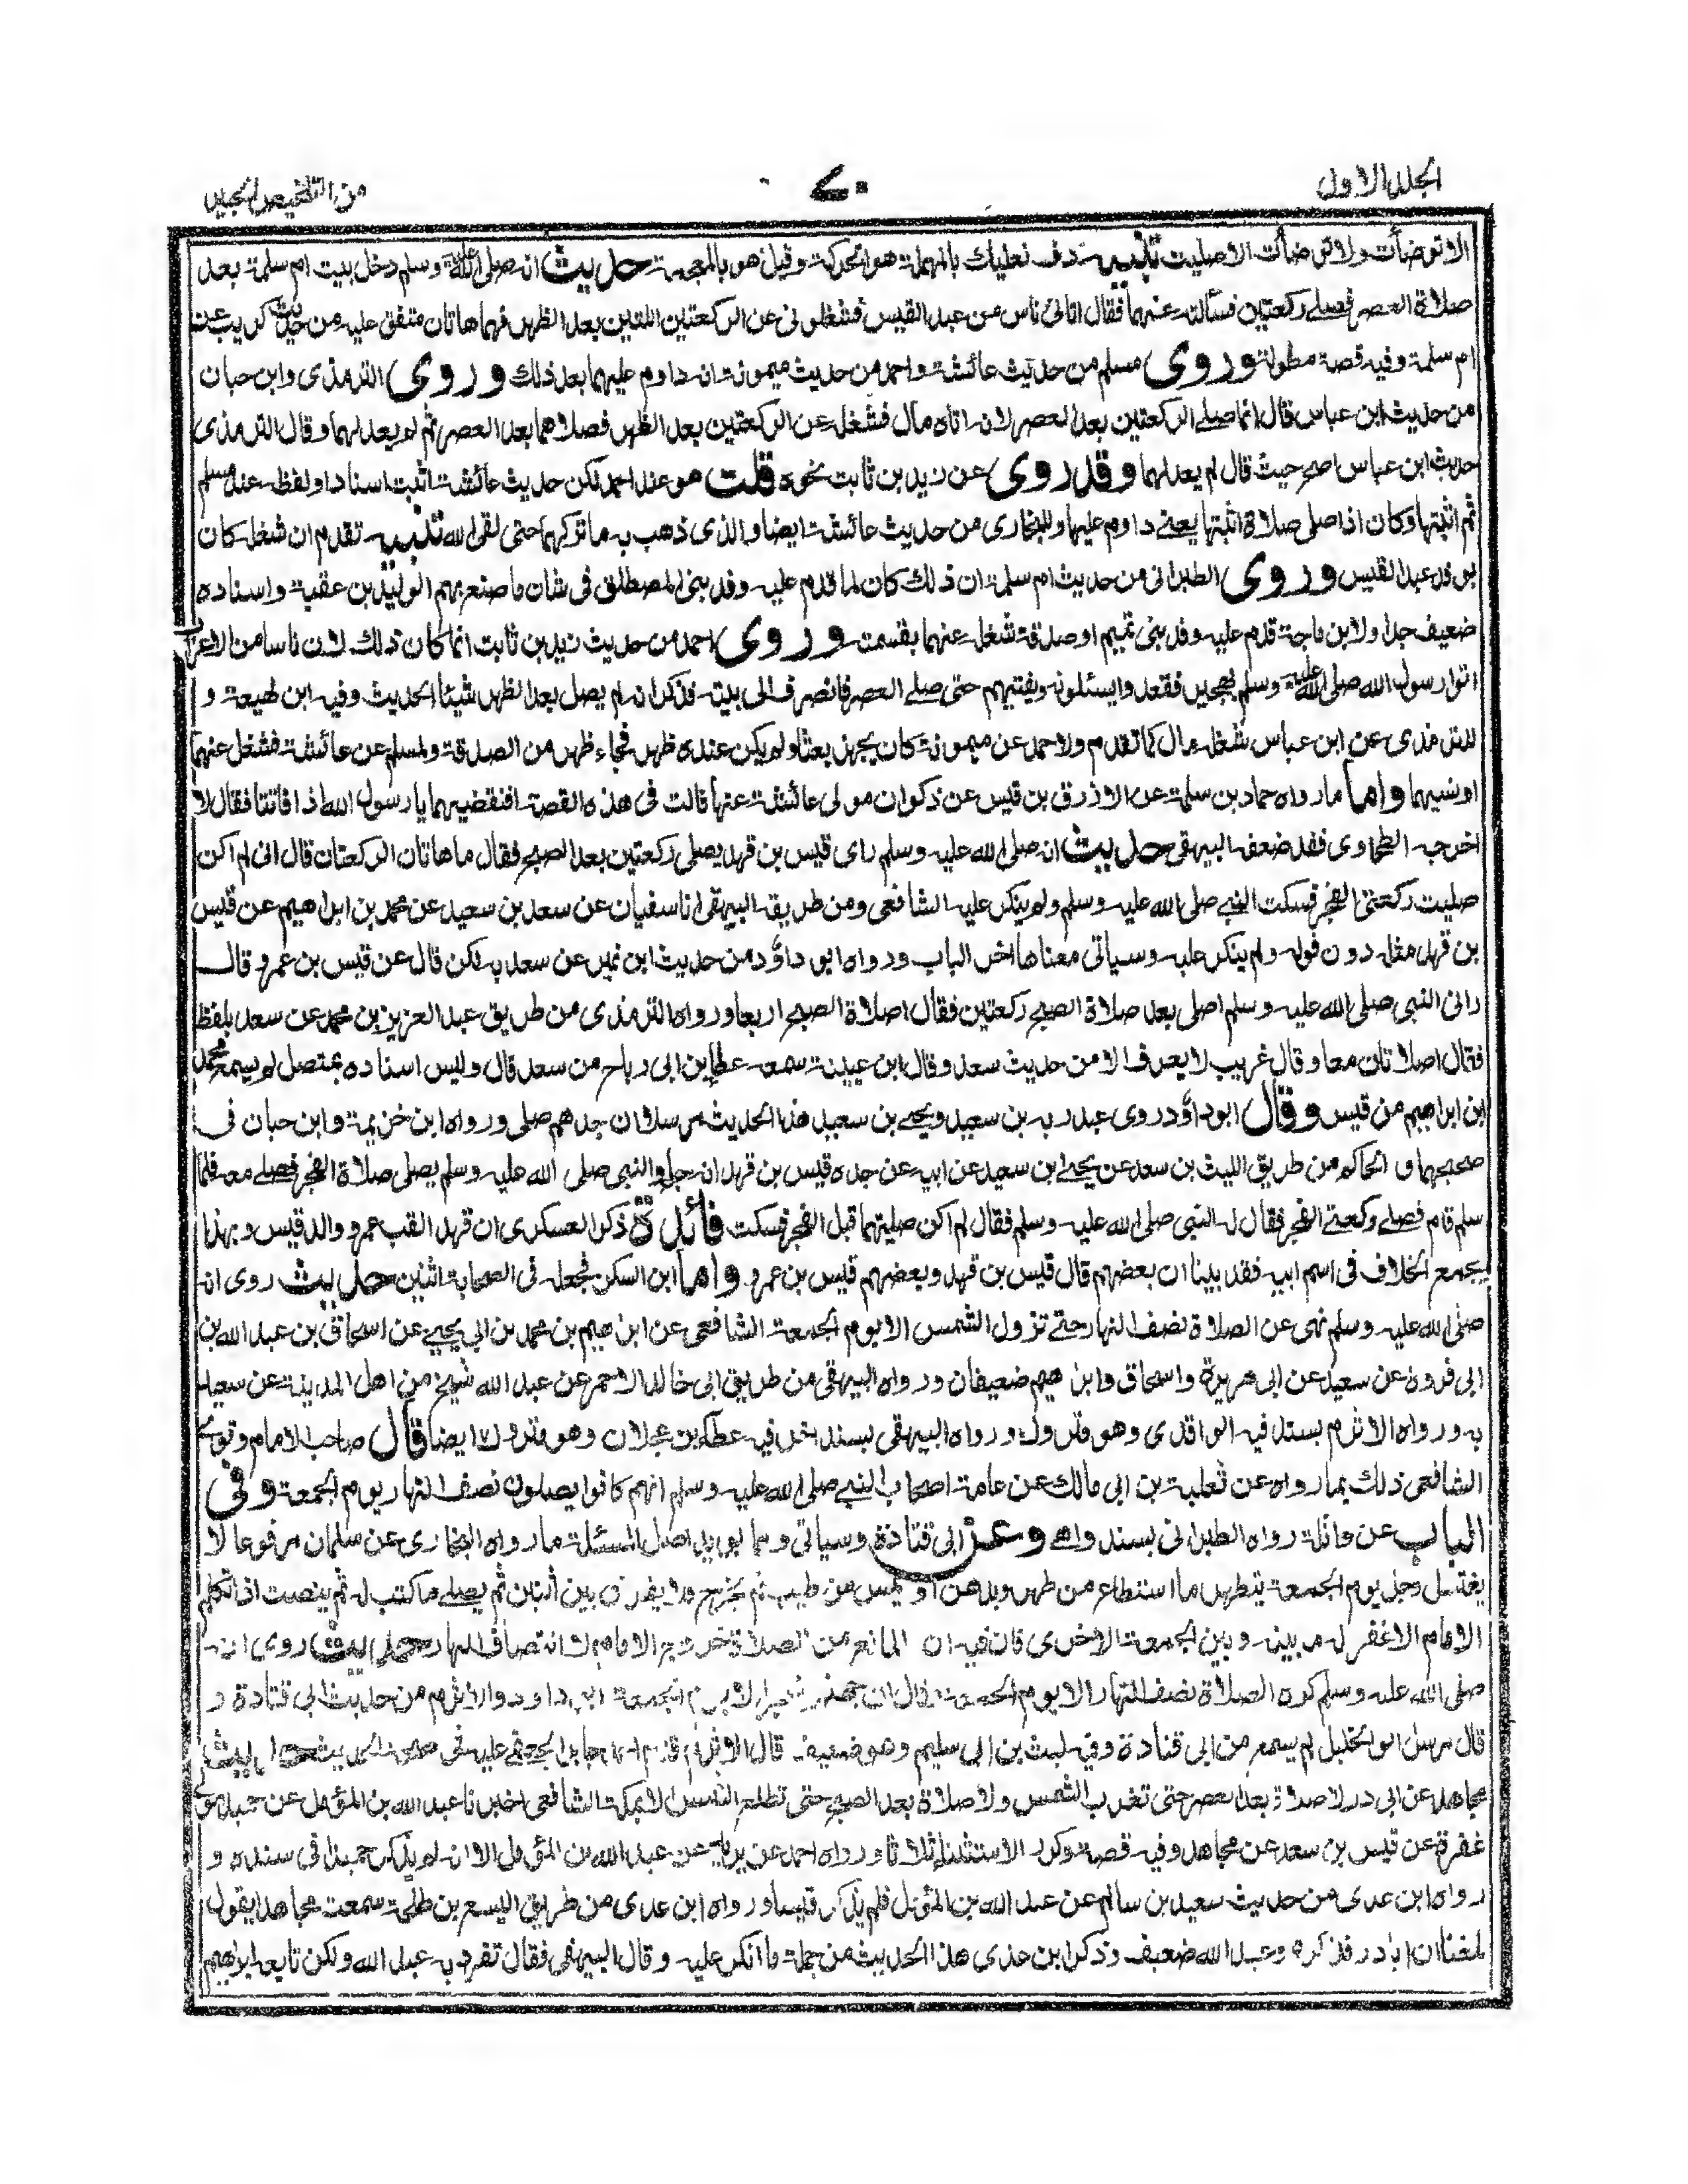 الجلد الاول
٧٠
من التلخيص الحبير
الا توضأت ولا توضأت الا صليت تنبيه دف نعليك بالمهملة هو الحركة وقيل هو بالمعجمة حديث انه صلى الله عليه وسلم دخل بيت ام سلمة بعد
صلاة العصر فصلے ركعتين فسألته عنهما فقال اتانى ناس من عبد القيس فشغلونى عن الركعتين اللتين بعد الظهر فهما هاتان متفق عليه من حديث كريب عن
ام سلمة وفيه قصة مطولة وروى مسلم من حديث عائشة واحمد من حديث ميمونة انه داوم عليهما بعد ذلك وروى الترمذى وابن حبان
من حديث ابن عباس قال انما صلے الركعتين بعد العصر لانه اتاه مال فشغله عن الركعتين بعد الظهر فصلاهما بعد العصر ثم لم يعد لهما وقال الترمذى
حديث ابن عباس اصح حيث قال لم يعد لهما وقد روى عن زيد بن ثابت نحوه قلت هو عند احمد لكن حديث عائشة اثبت اسنادا ولفظه عند مسلم
ثم اثبتها وكان اذا صلى صلاة اثبتها يعنے داوم عليها وللبخارى من حديث عائشة ايضا والذى ذهب به ما تركهما حتى لقى الله تنبيه تقدم ان شغله كان
بوفد عبد القيس وروى الطبرانى من حديث ام سلمة ان ذلك كان لما قدم عليه وفد بنى المصطلق فى شان ما صنع بهم الوليد بن عقبة واسناده
ضعيف جدا ولابن ماجة قدم عليه وفد بنى تميم او صدقة شغله عنهما بقسمته وروى احمد من حديث زيد بن ثابت انما كان ذلك لان ناسا من الاعراب
اتوا رسول الله صلى الله عليه وسلم بهجير فقعدوا يسئلونه ويفتيهم حتى صلے العصر فانصرف الى بيته فذكر انه لم يصل بعد الظهر شيئا الحديث وفيه ابن لهيعة و
للترمذى عن ابن عباس شغله مال كما تقدم ولاحمد عن ميمونة كان يجهز بعثا ولم يكن عنده ظهر فجاءه ظهر من الصدقة ولمسلم عن عائشة فشغل عنهما
او نسيهما واما ما رواه حماد بن سلمة عن الازرق بن قيس عن ذكوان مولى عائشة عنها قالت فى هذه القصة افنقضيهما يا رسول الله اذا فاتتا فقال لا
اخرجه الطحاوى فقد ضعفه البيهقى حديث انه صلى الله عليه وسلم راى قيس بن قهد يصلى ركعتين بعد الصبح فقال ما هاتان الركعتان قال انى لم اكن
صليت ركعتى الفجر فسكت النبى صلى الله عليه وسلم ولم ينكر عليه الشافعى ومن طريقه البيهقى انا سفيان عن سعد بن سعيد عن محمد بن ابراهيم عن قيس
بن قهد مثله دون قوله ولم ينكر عليه وسياتى معناها اخر الباب ورواه ابو داؤد من حديث ابن نمير عن سعد به لكن قال عن قيس بن عمرو قال
رانى النبى صلى الله عليه وسلم اصلى بعد صلاة الصبح ركعتين فقال اصلاة الصبح اربعا ورواه الترمذى من طريق عبد العزيز بن محمد عن سعد بلفظ
فقال اصلاتان معا وقال غريب لا يعرف الا من حديث سعد وقال ابن عيينة سمعه عطا بن ابى رباح من سعد قال وليس اسناده بمتصل لم يسمع محمد
ابن ابراهيم من قيس وقال ابو داؤد روى عبد ربه بن سعيد ويحيے بن سعيد هذا الحديث مرسلا ان جدهم صلى ورواه ابن خزيمة وابن حبان فى
صحيحهما و الحاكم من طريق الليث بن سعد عن يحيے ابن سعيد عن ابيه عن جده قيس بن قهد انه جاء والنبى صلى الله عليه وسلم يصلى صلاة الفجر فصلے معه فلما
سلم قام فصلے ركعتے الفجر فقال له النبى صلى الله عليه وسلم فقال لم اكن صليتهما قبل الفجر فسكت فائدة ذكر العسكرى ان قهد القب عمرو والد قيس وبهذا
يجمع الخلاف فى اسم ابيه فقد بينا ان بعضهم قال قيس بن قهد وبعضهم قيس بن عمرو واما ابن السكن فجعله فى الصحابة اثنين حديث روى انه
صلى الله عليه وسلم نهى عن الصلاة نصف النهار حتے تزول الشمس الا يوم الجمعة الشافعى عن ابرهيم بن محمد بن ابى يحيے عن اسحاق بن عبد الله بن
ابى فروة عن سعيد عن ابى هريرة واسحاق وابرهيم ضعيفان ورواه البيهقى من طريق ابى خالد الاحمر عن عبد الله شيخ من اهل المدينة عن سعيد
به ورواه الاثرم بسند فيه الواقدى وهو متروك ورواه البيهقى بسند اخر فيه عطاء بن عجلان وهو متروك ايضا قال صاحب الامام وقوى
الشافعى ذلك بما رواه عن ثعلبة بن ابى مالك عن عامة اصحاب النبے صلى الله عليه وسلم انهم كانوا يصلون نصف النهار يوم الجمعة وفى
الباب عن واثلة رواه الطبرانى بسند واه وعن ابى قتادة وسياتى ومما يويد اصل المسئلة ما رواه البخارى عن سلمان مرفوعا لا
يغتسل رجل يوم الجمعة يتطهر ما استطاع من طهر ويدهن او يمس من طيب ثم يخرج ولا يفرق بين اثنين ثم يصلے ما كتب له ثم ينصت اذا تكلم
الامام الا غفر له ما بينه وبين الجمعة الاخرى فان فيه ان المانع من الصلاة خروج الامام لا انتصاف النهار حديث روى انه
صلى الله عليه وسلم كره الصلاة نصف النهار الا يوم الجمعة وقال ان جهنم تسجر الا يوم الجمعة ابو داود والاثرم من حديث ابى قتادة و
قال مرسل ابو الخليل لم يسمع من ابى قتادة وفيه ليث بن ابى سليم وهو ضعيف قال الاثرم قدم احمد جابر الجعفى عليه فى صحة الحديث حديث
مجاهد عن ابى ذر لا صلاة بعد العصر حتى تغرب الشمس ولا صلاة بعد الصبح حتى تطلع الشمس الا بمكة الشافعى اخبرنا عبد الله بن المؤمل عن حميد مولى
غفرة عن قيس بن سعد عن مجاهد وفيه قصة وكرر الاستثناء ثلاثا ورواه احمد عن يزيد عن عبد الله بن المؤمل الا انه لم يذكر حميدا فى سنده و
رواه ابن عدى من حديث سعيد بن سالم عن عبد الله بن المؤمل فلم يذكر قيسا ورواه ابن عدى من طريق اليسع بن طلحة سمعت مجاهدا يقول
بلغنا ان ابا ذر فذكره وعبد الله ضعيف وذكر ابن عدى هذا الحديث من جملة ما انكر عليه وقال البيهقى فقال تفرد به عبد الله ولكن تابعه ابراهيم